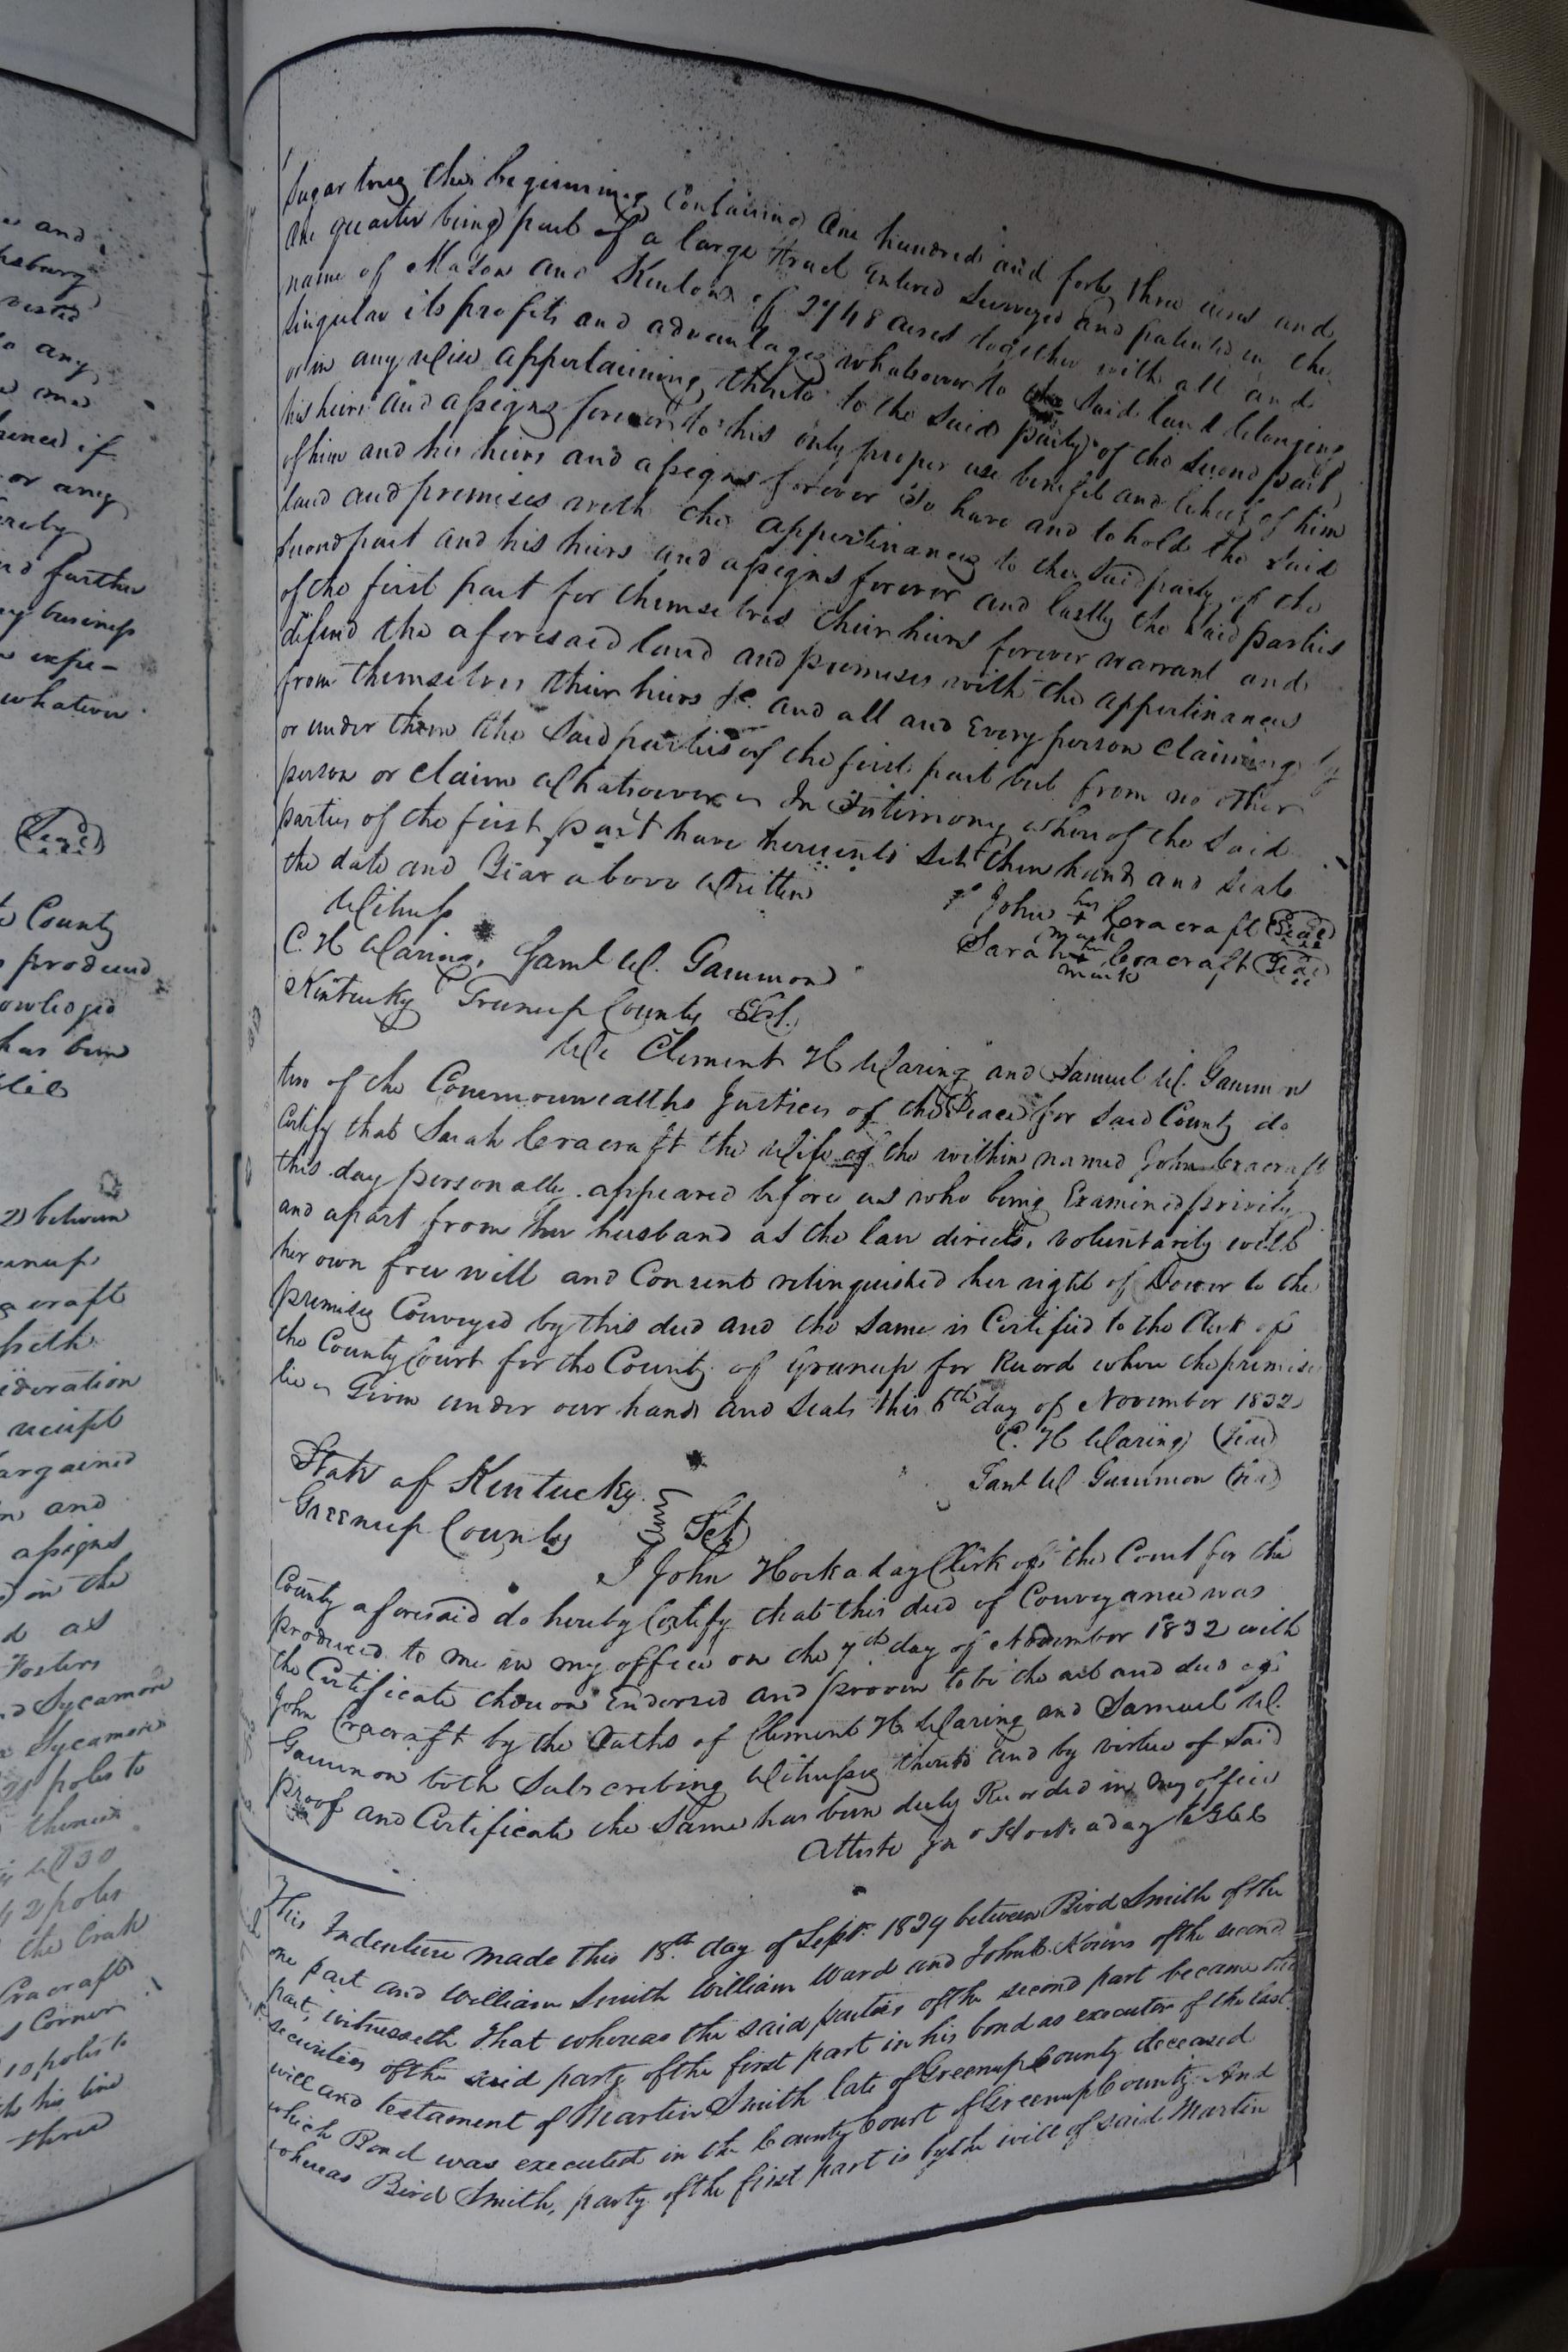 s and
hsburg
vested
to any
d and
hence if
or any
ereby
nd further
ny business
n expe-
whatever
(Seal)
County
produced
owledged
has been
2) between
eenup
acraft
seth
ideration
receipt
argained
n and
assigns
) on the
d as
Fosters
nd Sycamore
Sycamore
21 poles to
thence
W 30
42 poles
the Creek
Cracraft
s Corner
10 poles to
his line
three
Sugar tree the beginning Containing One hundred and forty three acres and
One quarter being part of a large tract Entered Surveyed and patented in the
name of Mason and Kenton of 2748 acres together with all and
Singular its profits and advantages whatsoever to the said land belonging
or in any wise appertaining thereto to the said party of the Second part
his heirs and assigns forever to his only proper use benefit and behoof of him
of him and his heirs and assigns forever To have and to hold the said
land and premises with the appertinances to the said party of the
Second part and his heirs and assigns forever and lastly the said parties
of the first part for themselves their heirs forever warrant and
defend the aforesaid land and premises with the appertinances
from themselves their heirs &c. and all and Every person Claiming by
or under them the Said parties of the first part but from no other
person or Claim Whatsoever In Testimony when of the Said
parties of the first part have hereunto Set their hands and Seals
the date and Year above Written
Witness
John his + mark Cracraft (Seal)
C. H Waring, Saml W. Gammon
Sarah her + mark Cracraft (Seal)
Kentucky Greenup County Sct.
We Clement H Waring and Samuel W. Gammon
two of the Commonwealths Justices of the Peace for said County do
Certify that Sarah Cracraft the Wife of the within named John Cracraft
this day personally appeared before us who being Examined privily
and apart from her husband as the law directs, voluntarily with
her own free will and Consent relinquished her right of Dower to the
premises Conveyed by this deed and the Same is Certified to the Clerk of
the County Court for the County of Greenup for Record where the premises
lie Given under our hands and Seals this 6th day of November 1832
C. H Waring (Seal)
Saml W Gammon (Seal)
State of Kentucky
Greenup County } Sct
I John Hockaday Clerk of the Court for the
County aforesaid do hereby Certify that this deed of Conveyance was
produced to me in my office on the 7th day of November 1832 with
the Certificate thereon Endorsed and proven to be the act and deed of
John Cracraft by the Oaths of Clement H Waring and Samuel W.
Gammon both Subscribing Witnesses thereto and by virtue of Said
proof and Certificate the Same has been duly Recorded in my office
Atteste Jno Hockaday
This Indenture made this 18th day of Sept. 1829 between Bird Smith of the
one part and William Smith William Ward and John B. of the second
part, witnesseth that whereas the said parties of the second part became the
securities of the said party of the first part in his bond as executor of the last
will and testament of Martin Smith late of Greenup County deceased
which Bond was executed in the County Court of Greenup County. And
whereas Bird Smith, party of the first part is by the will of said Martin